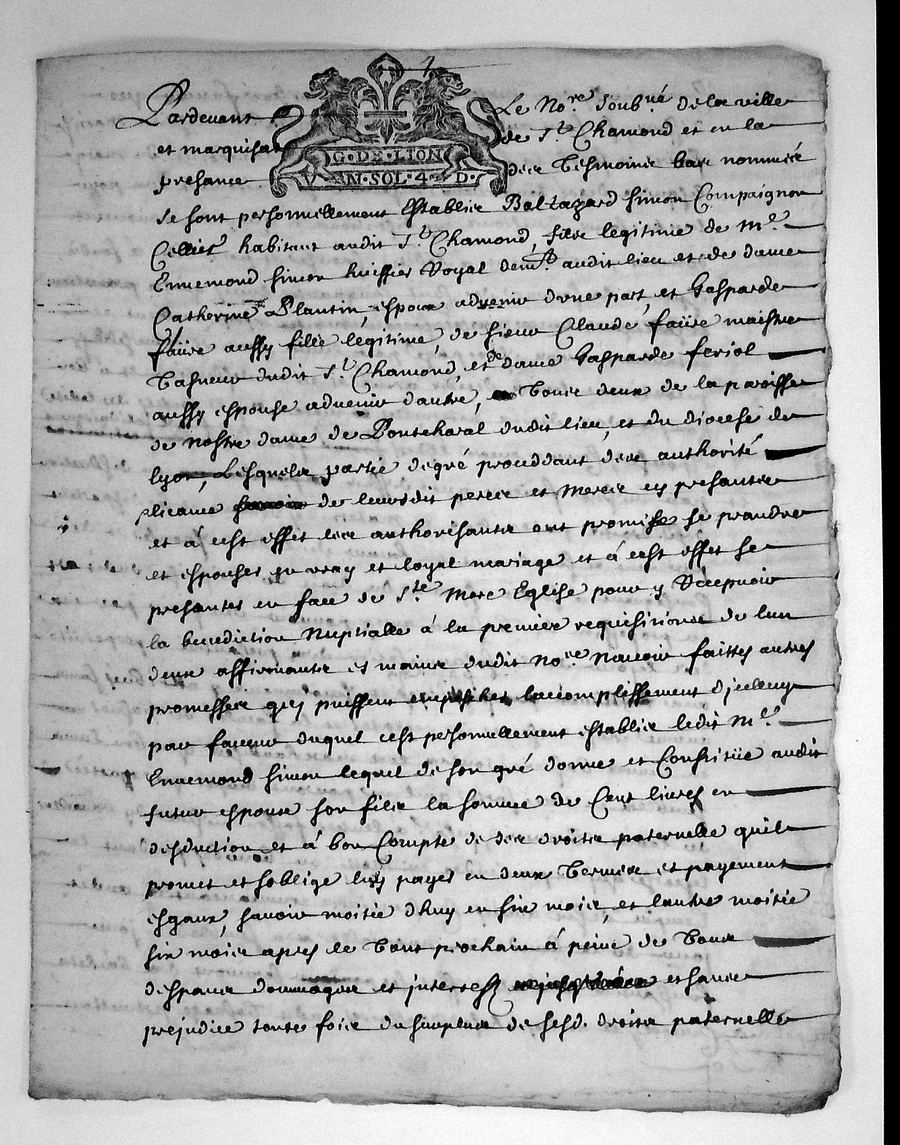 Pardevant Le No.re Soubné de la ville
et marquisat de St Chamond et en la
G·DE·LION
UN·SOL·4·D·
presance des Tesmoins bas nommés
se sont personnellement establis Baltazard simon Compaignon
Cellier habitant audit St Chamond, fils legitime de Mre
Ennemond simon huissier Royal demt audit lieu et de dame
Catherine Plantin, espoux advenir d'une part, et Gasparde
faure aussy fille legitime, de sieur Claude faüre maistre
Taneur dudit St Chamond, et de dame Gasparde feriol
aussy espouse advenir dautre, Tous deux de la paroisse
de nostre dame de Ponteharal dudit lieu, et du diocese de
lyon, Lesquels partie de gré proceddant de authorité
licance de leursdit peres et Meres cy presants
et á cest effet les authorisants ont promis se prandre
et espouser en vray et loyal mariage et á cest effet se
presanter en face de Ste Mere Eglise pour y Recepvoir
la benediction Nuptialle á la premier requisitions de lun
deux affirmants es mains dudit Nore navoir faittes autres
promesses qui puissent empescher laccomplissement djceluy
pour faveur duquel cest personnellement establie ledit Mre
Ennemond simon lequel de son gré donne et Constitüe audit
futur espoux son fils la somme de Cent livres en
desduction et á bon Compte de ses droits paternelle quil
promet et soblige luy payer en deux Termes et payement
esgaux, savoir moitié dhuy en six mois, et lautre moitiée
six mois apres le Tout prochain á peine de Tous
despans dommages et interestz et sans
prejudice toute fois du surplus de sesd. droits paternelle